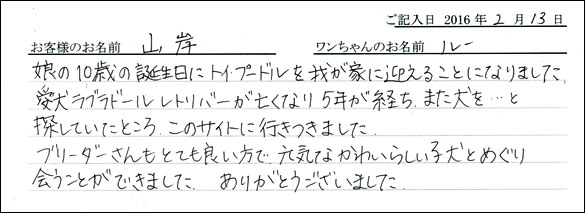 ご記入日 2016年2月13日
お客様のお名前 山岸 ワンちゃんのお名前 ルー
娘の10歳の誕生日にトイ・プードルを我が家に迎えることになりました。
愛犬ラブラドールレトリバーが亡くなり5年が経ち、また犬を…と
探していたところ、このサイトに行きつきました。
ブリーダーさんもとても良い方で、元気なかわいらしい子犬とめぐり
会うことができました。ありがとうございました。